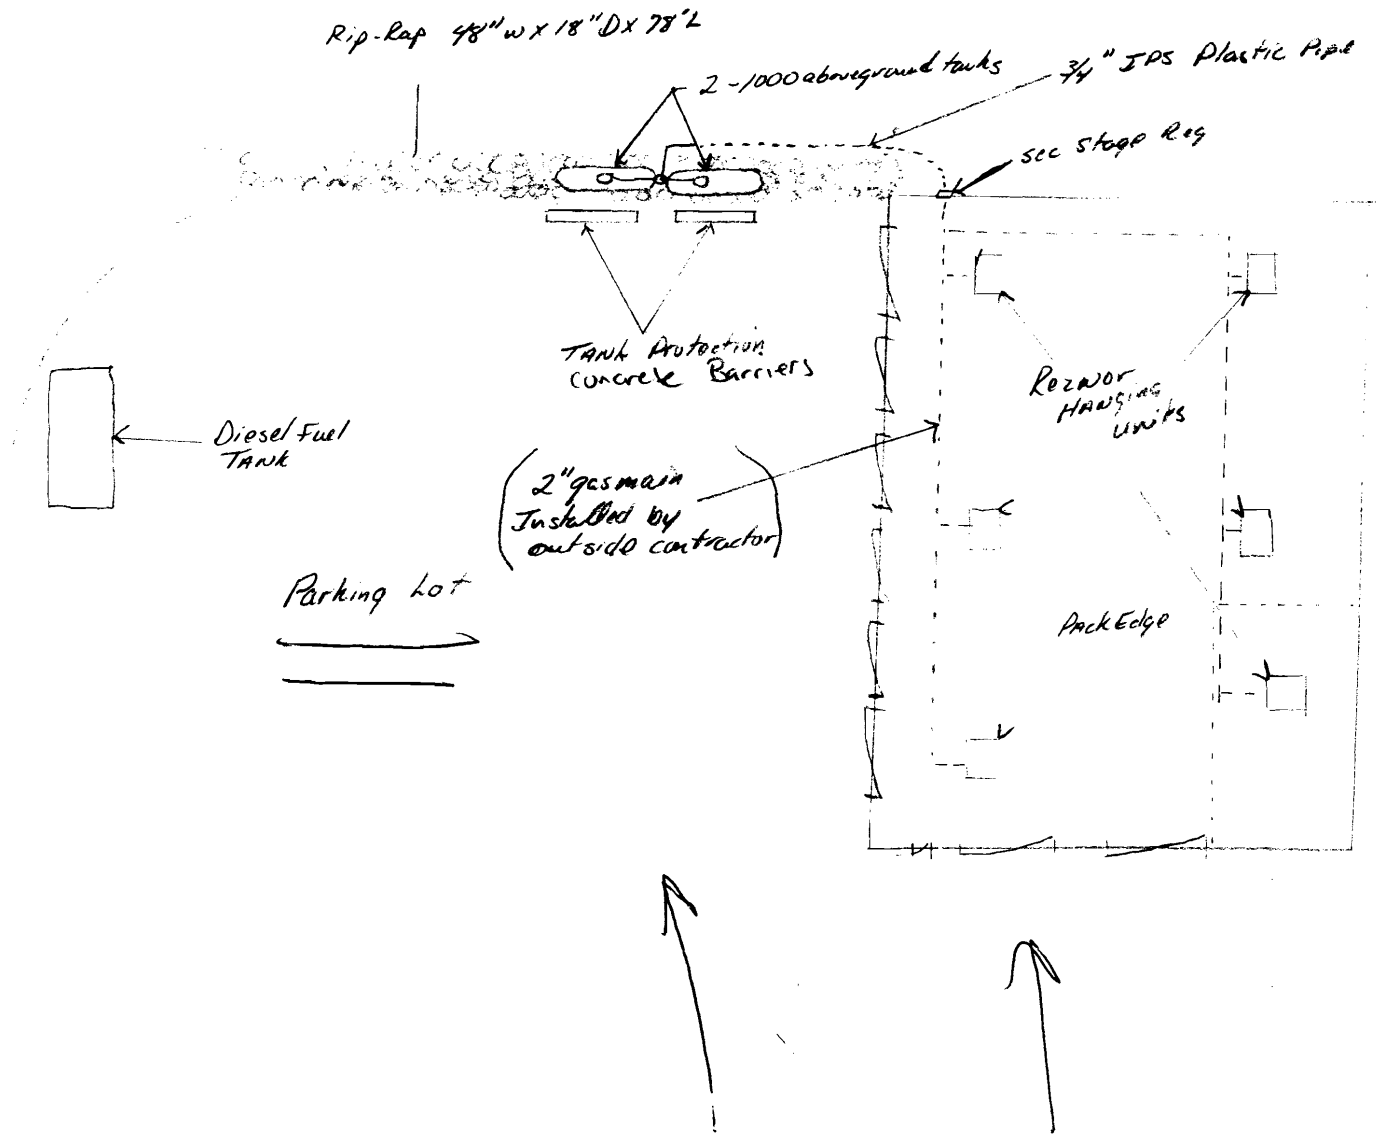 Rip-Rap 48"w x 18"D x 78'L
2-1000 aboveground tanks
3/4" IPS Plastic Pipe
sec stage Reg
TANK Protection
Concrete Barriers
Reznor
HANGING
units
Diesel Fuel
TANK
2" gas main
Installed by
outside contractor
Parking Lot
PACKEdge